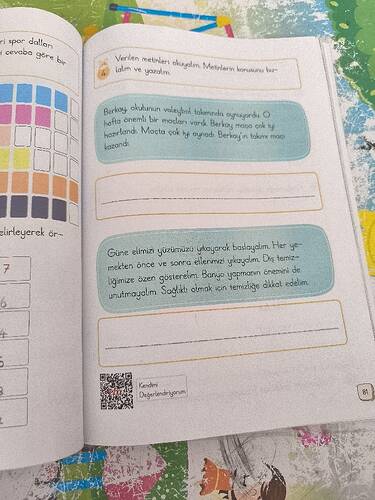 ri spor dalları
i cevaba göre bir
elirleyerek ör-
7
6
4
4
Verilen metinleri okuyalım. Metinlerin konusunu bu-
lalım ve yazalım.
Berkay, okulunun voleybol takımında oynuyordu. O
hafta önemli bir maçları vardı. Berkay maça çok iyi
hazırlandı. Maçta çok iyi oynadı. Berkay'ın takımı maçı
kazandı.
Güne elimizi yüzümüzü yıkayarak başlayalım. Her ye-
mekten önce ve sonra ellerimizi yıkayalım. Diş temiz-
liğimize özen gösterelim. Banyo yapmanın önemini de
unutmayalım. Sağlıklı olmak için temizliğe dikkat edelim.
Kendimi
Değerlendiriyorum
81